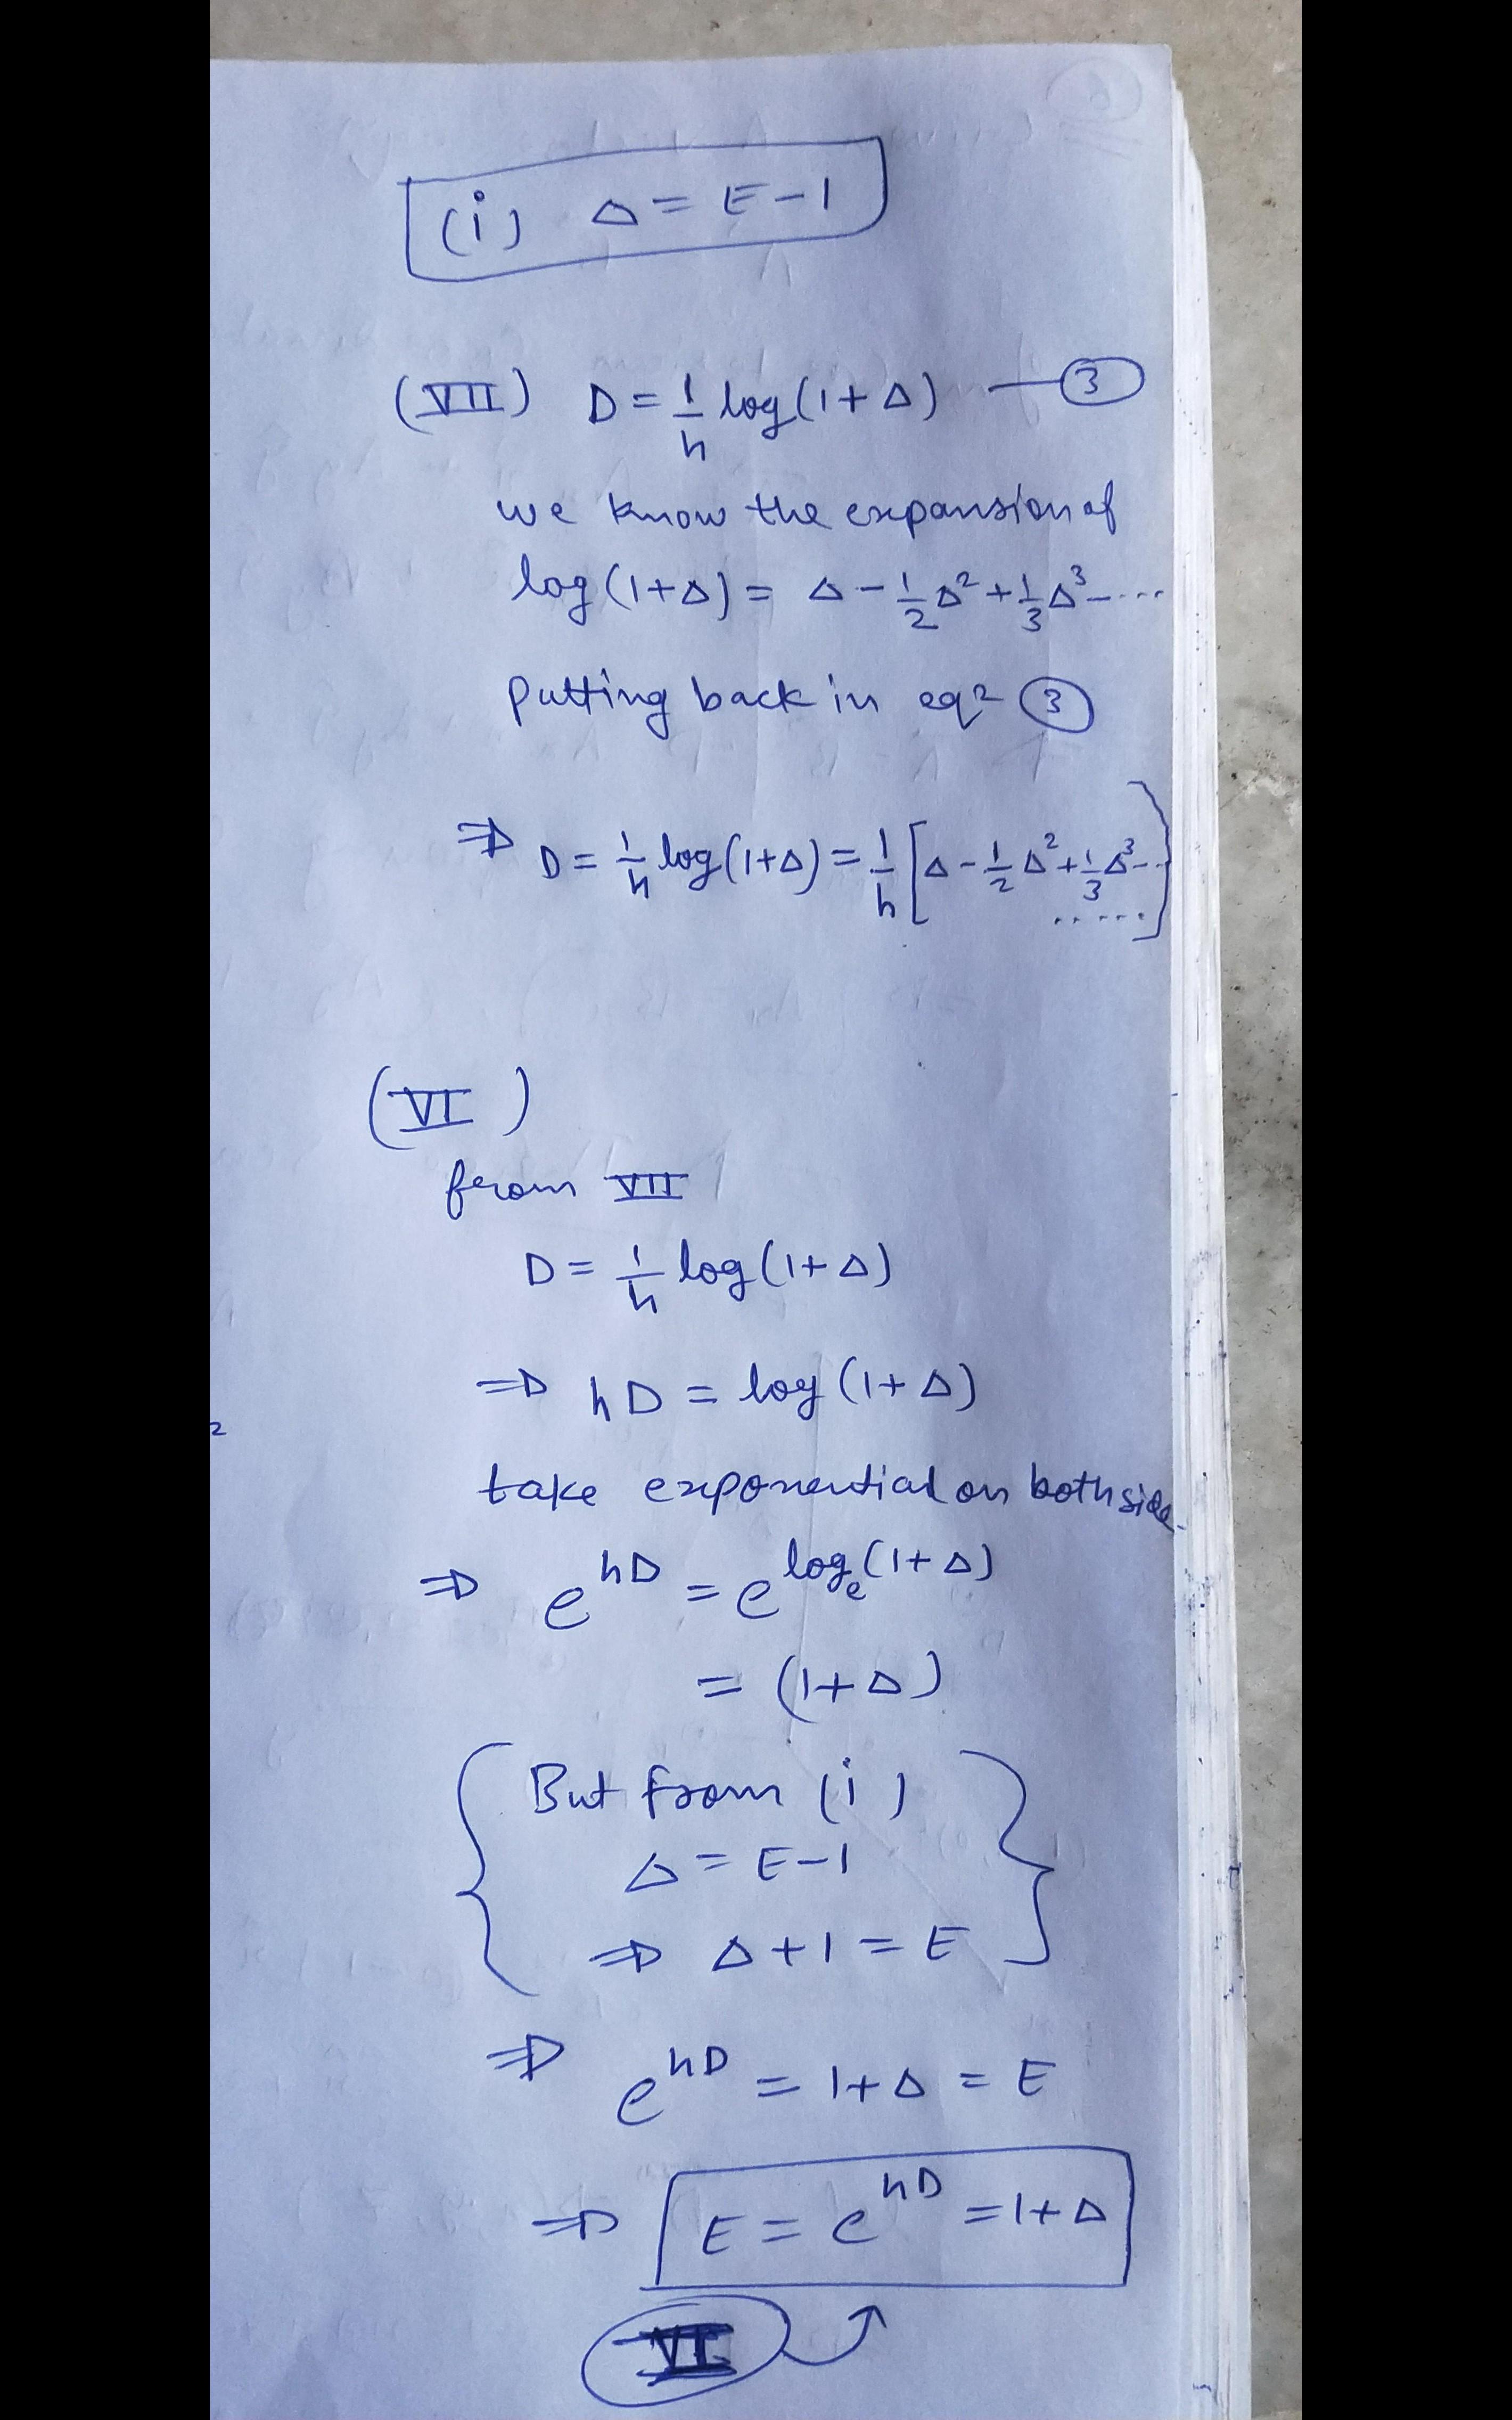 (i) Δ = E - 1
(VII) D = 1/h log(1+Δ) — 3
we know the expansion of
log(1+Δ) = Δ - 1/2 Δ² + 1/3 Δ³ - ....
putting back in eqn 3
⇒ D = 1/h log(1+Δ) = 1/h [Δ - 1/2 Δ² + 1/3 Δ³ - ..
.....]
(VI)
from VII
D = 1/h log(1+Δ)
⇒ hD = log(1+Δ)
take exponential on both side.
⇒ e^hD = e^logₑ(1+Δ)
= (1+Δ)
{ But from (i)
Δ = E-1
⇒ Δ+1 = E }
⇒ e^hD = 1+Δ = E
⇒ E = e^hD = 1+Δ
VI